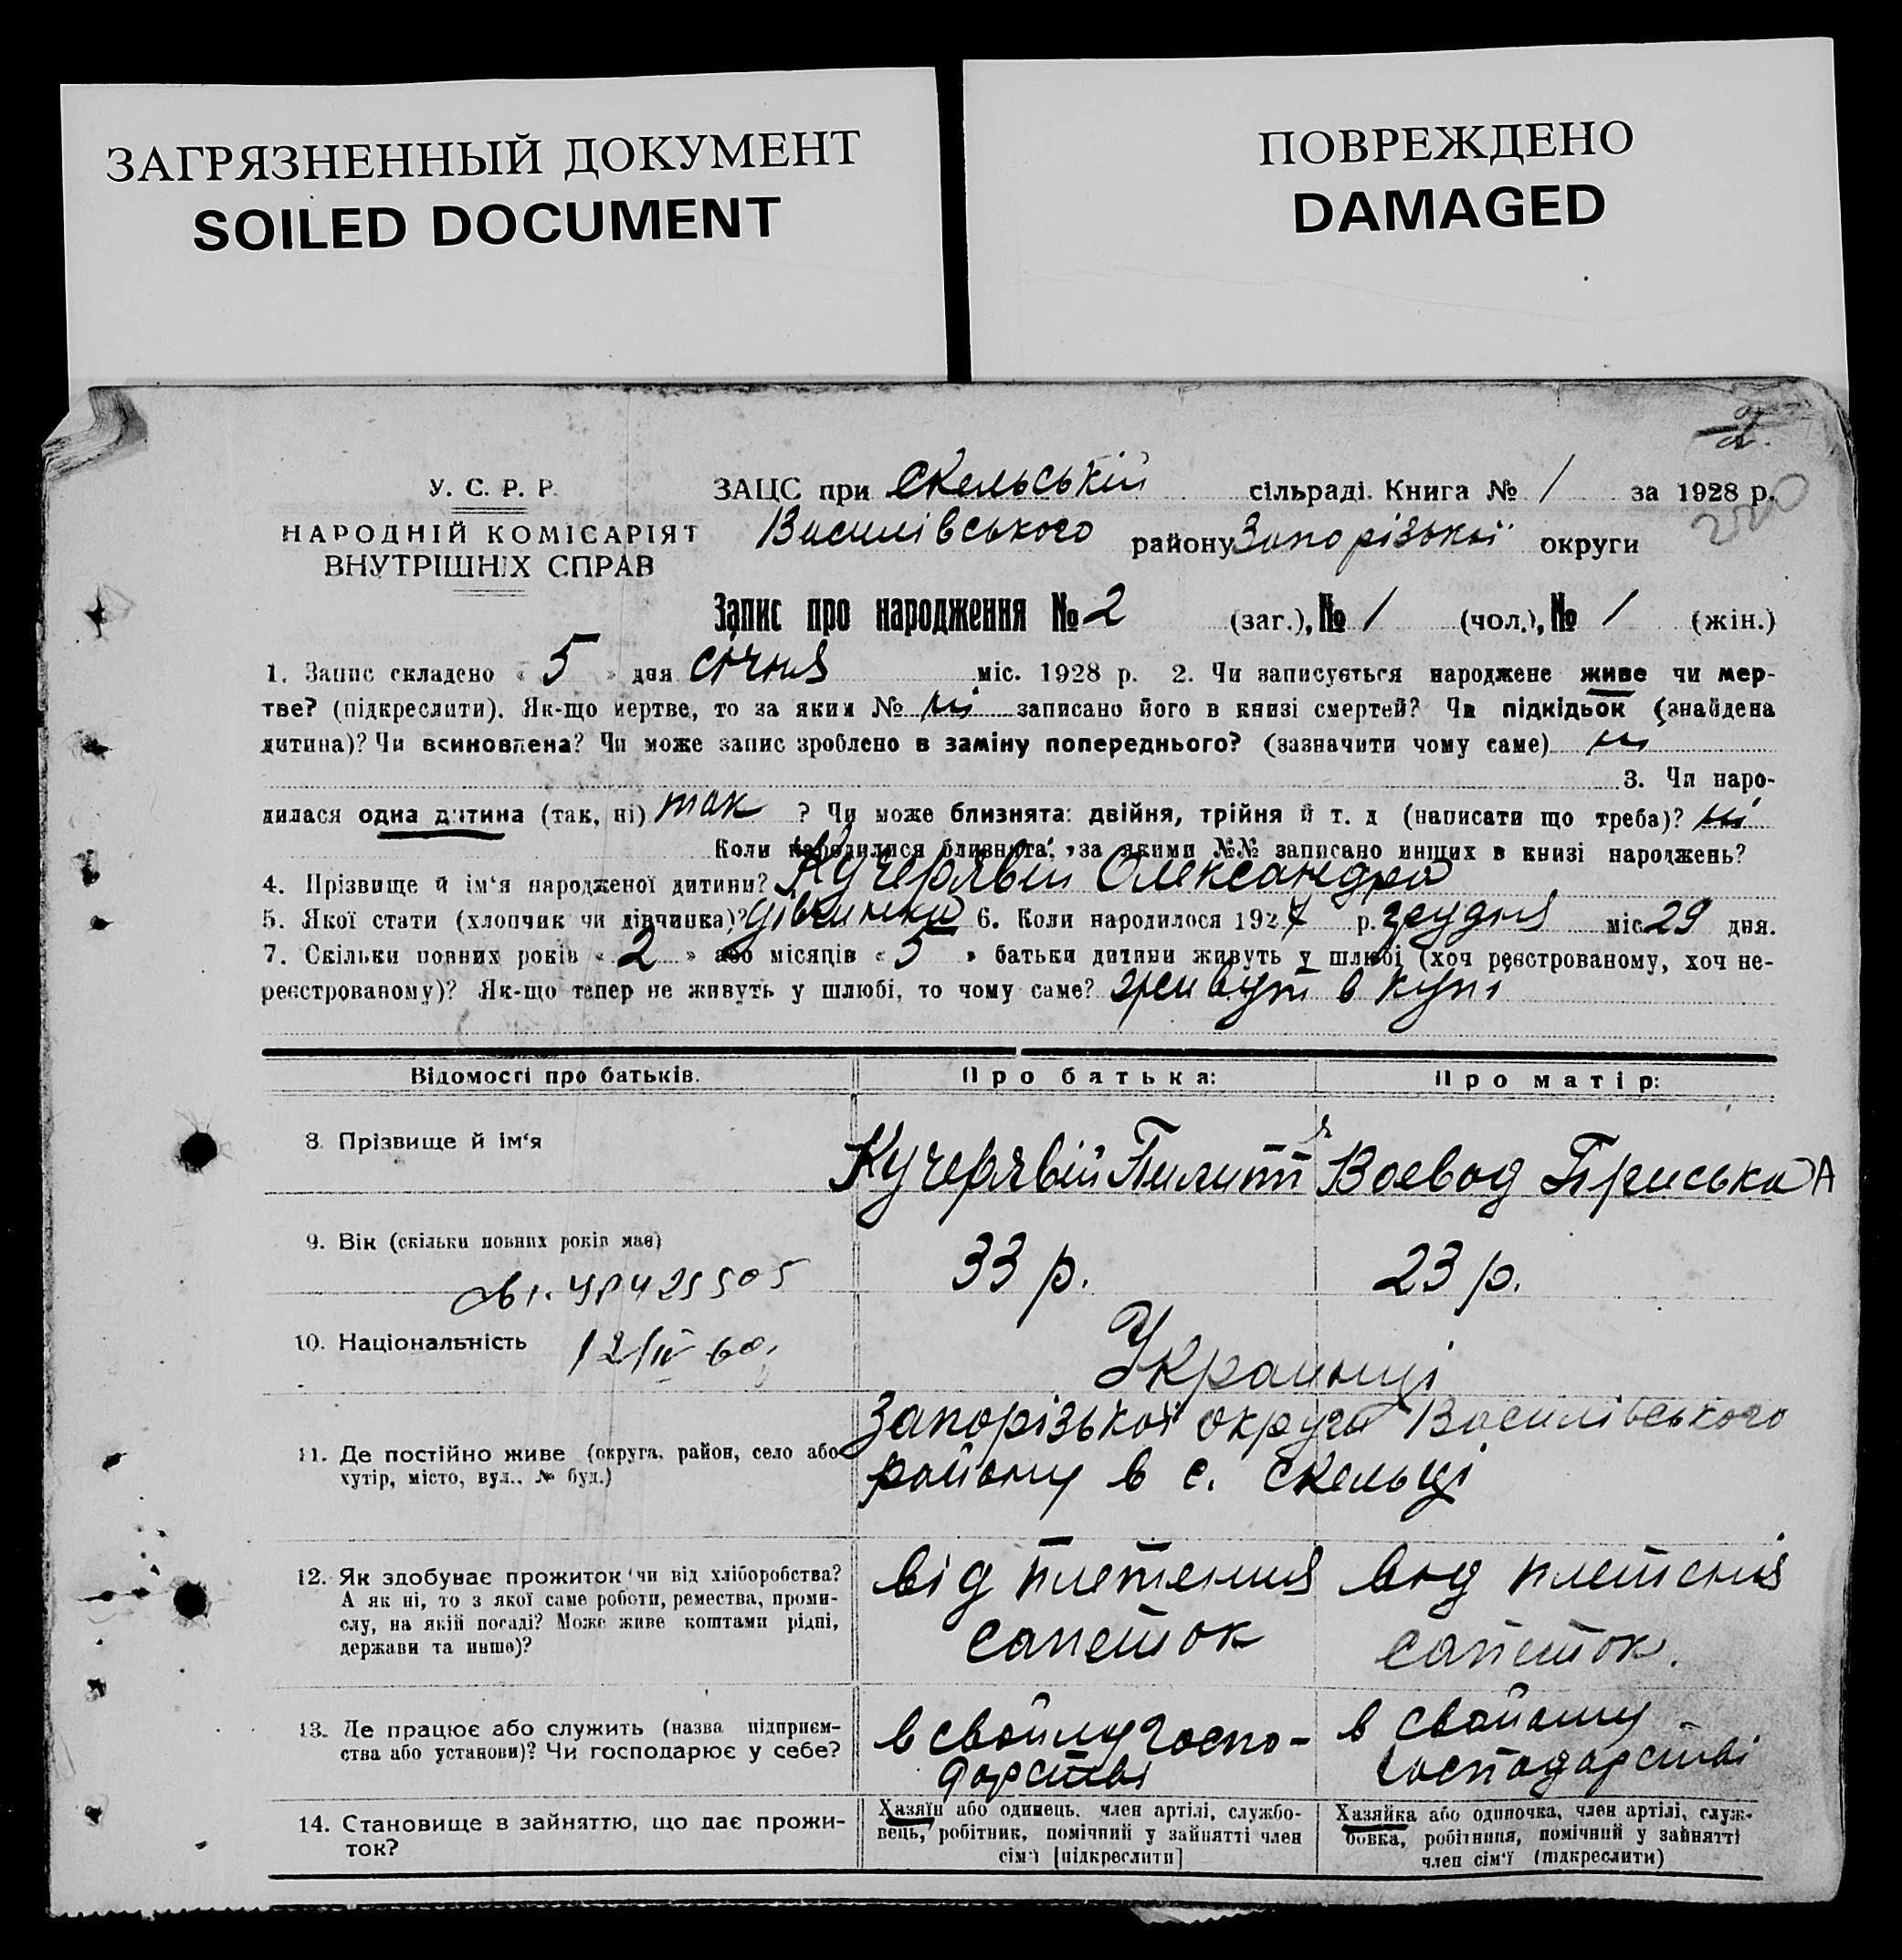 ЗАГРЯЗНЕННЫЙ ДОКУМЕНТ
SOILED DOCUMENT
ПОВРЕЖДЕНО
DAMAGED
У. С. Р. Р.
НАРОДНІЙ КОМІСАРІЯТ
ВНУТРІШНІХ СПРАВ
ЗАЦС при Скельській сільраді. Книга № 1 за 1928 р.
Василівського району Запорізької округи
Запис про народження № 2 (заг.), № 1 (чол.), № 1 (жін.)
1. Запис складено « 5 » дня січня міс. 1928 р. 2. Чи записується народжене живе чи мер-
тве? (підкреслити). Як-що мертве, то за яким № ні записано його в книзі смертей? Чи підкідьок (знайдена
дитина)? Чи всиновлена? Чи може запис зроблено в заміну попереднього? (зазначити чому саме) ні
3. Чи наро-
дилася одна дитина (так, ні) так ? Чи може близнята: двійня, трійня й т. д (написати що треба)? ні
Коли народилися близнята, за якими №№ записано инших в книзі народжень?
4. Прізвище й ім'я народженої дитини? Кучерявій Олександра
5. Якої стати (хлопчик чи дівчинка)? дівчинка 6. Коли народилося 1927 р. грудня міс 29 дня.
7. Скільки повних років « 2 » або місяців « 5 » батьки дитини живуть у шлюбі (хоч реєстрованому, хоч не-
реєстрованому)? Як-що тепер не живуть у шлюбі, то чому саме? живут в купі
Відомості про батьків.
Про батька:
Про матір:
8. Прізвище й ім'я
Кучерявій Пилип
Воевод Пріська
9. Вік (скільки повних років має)
33 р.
23 р.
10. Національність
12/IV 60
Українці
11. Де постійно живе (округа, район, село або
хутір, місто, вул., № буд.)
Запорізької округи Василівського
району в с. Скельці
12. Як здобуває прожиток (чи від хліборобства?
А як ні, то з якої саме роботи, ремества, проми-
слу, на якій посаді? Може живе коштами рідні,
держави та инше)?
від плетення
сапеток
вид плетеня
сапеток.
13. Де працює або служить (назва підприєм-
ства або установи)? Чи господарює у себе?
в свойму госпо-
дарстві
в свойому
господарстві
14. Становище в зайняттю, що дає прожи-
ток?
Хазяїн або одинець, член артілі, службо-
вець, робітник, помічний у зайнятті член
сім'ї [підкреслити]
Хазяйка або одиночка, член артілі, служ-
бовка, робітниця, помічний у зайнятті
член сім'ї (підкреслити)